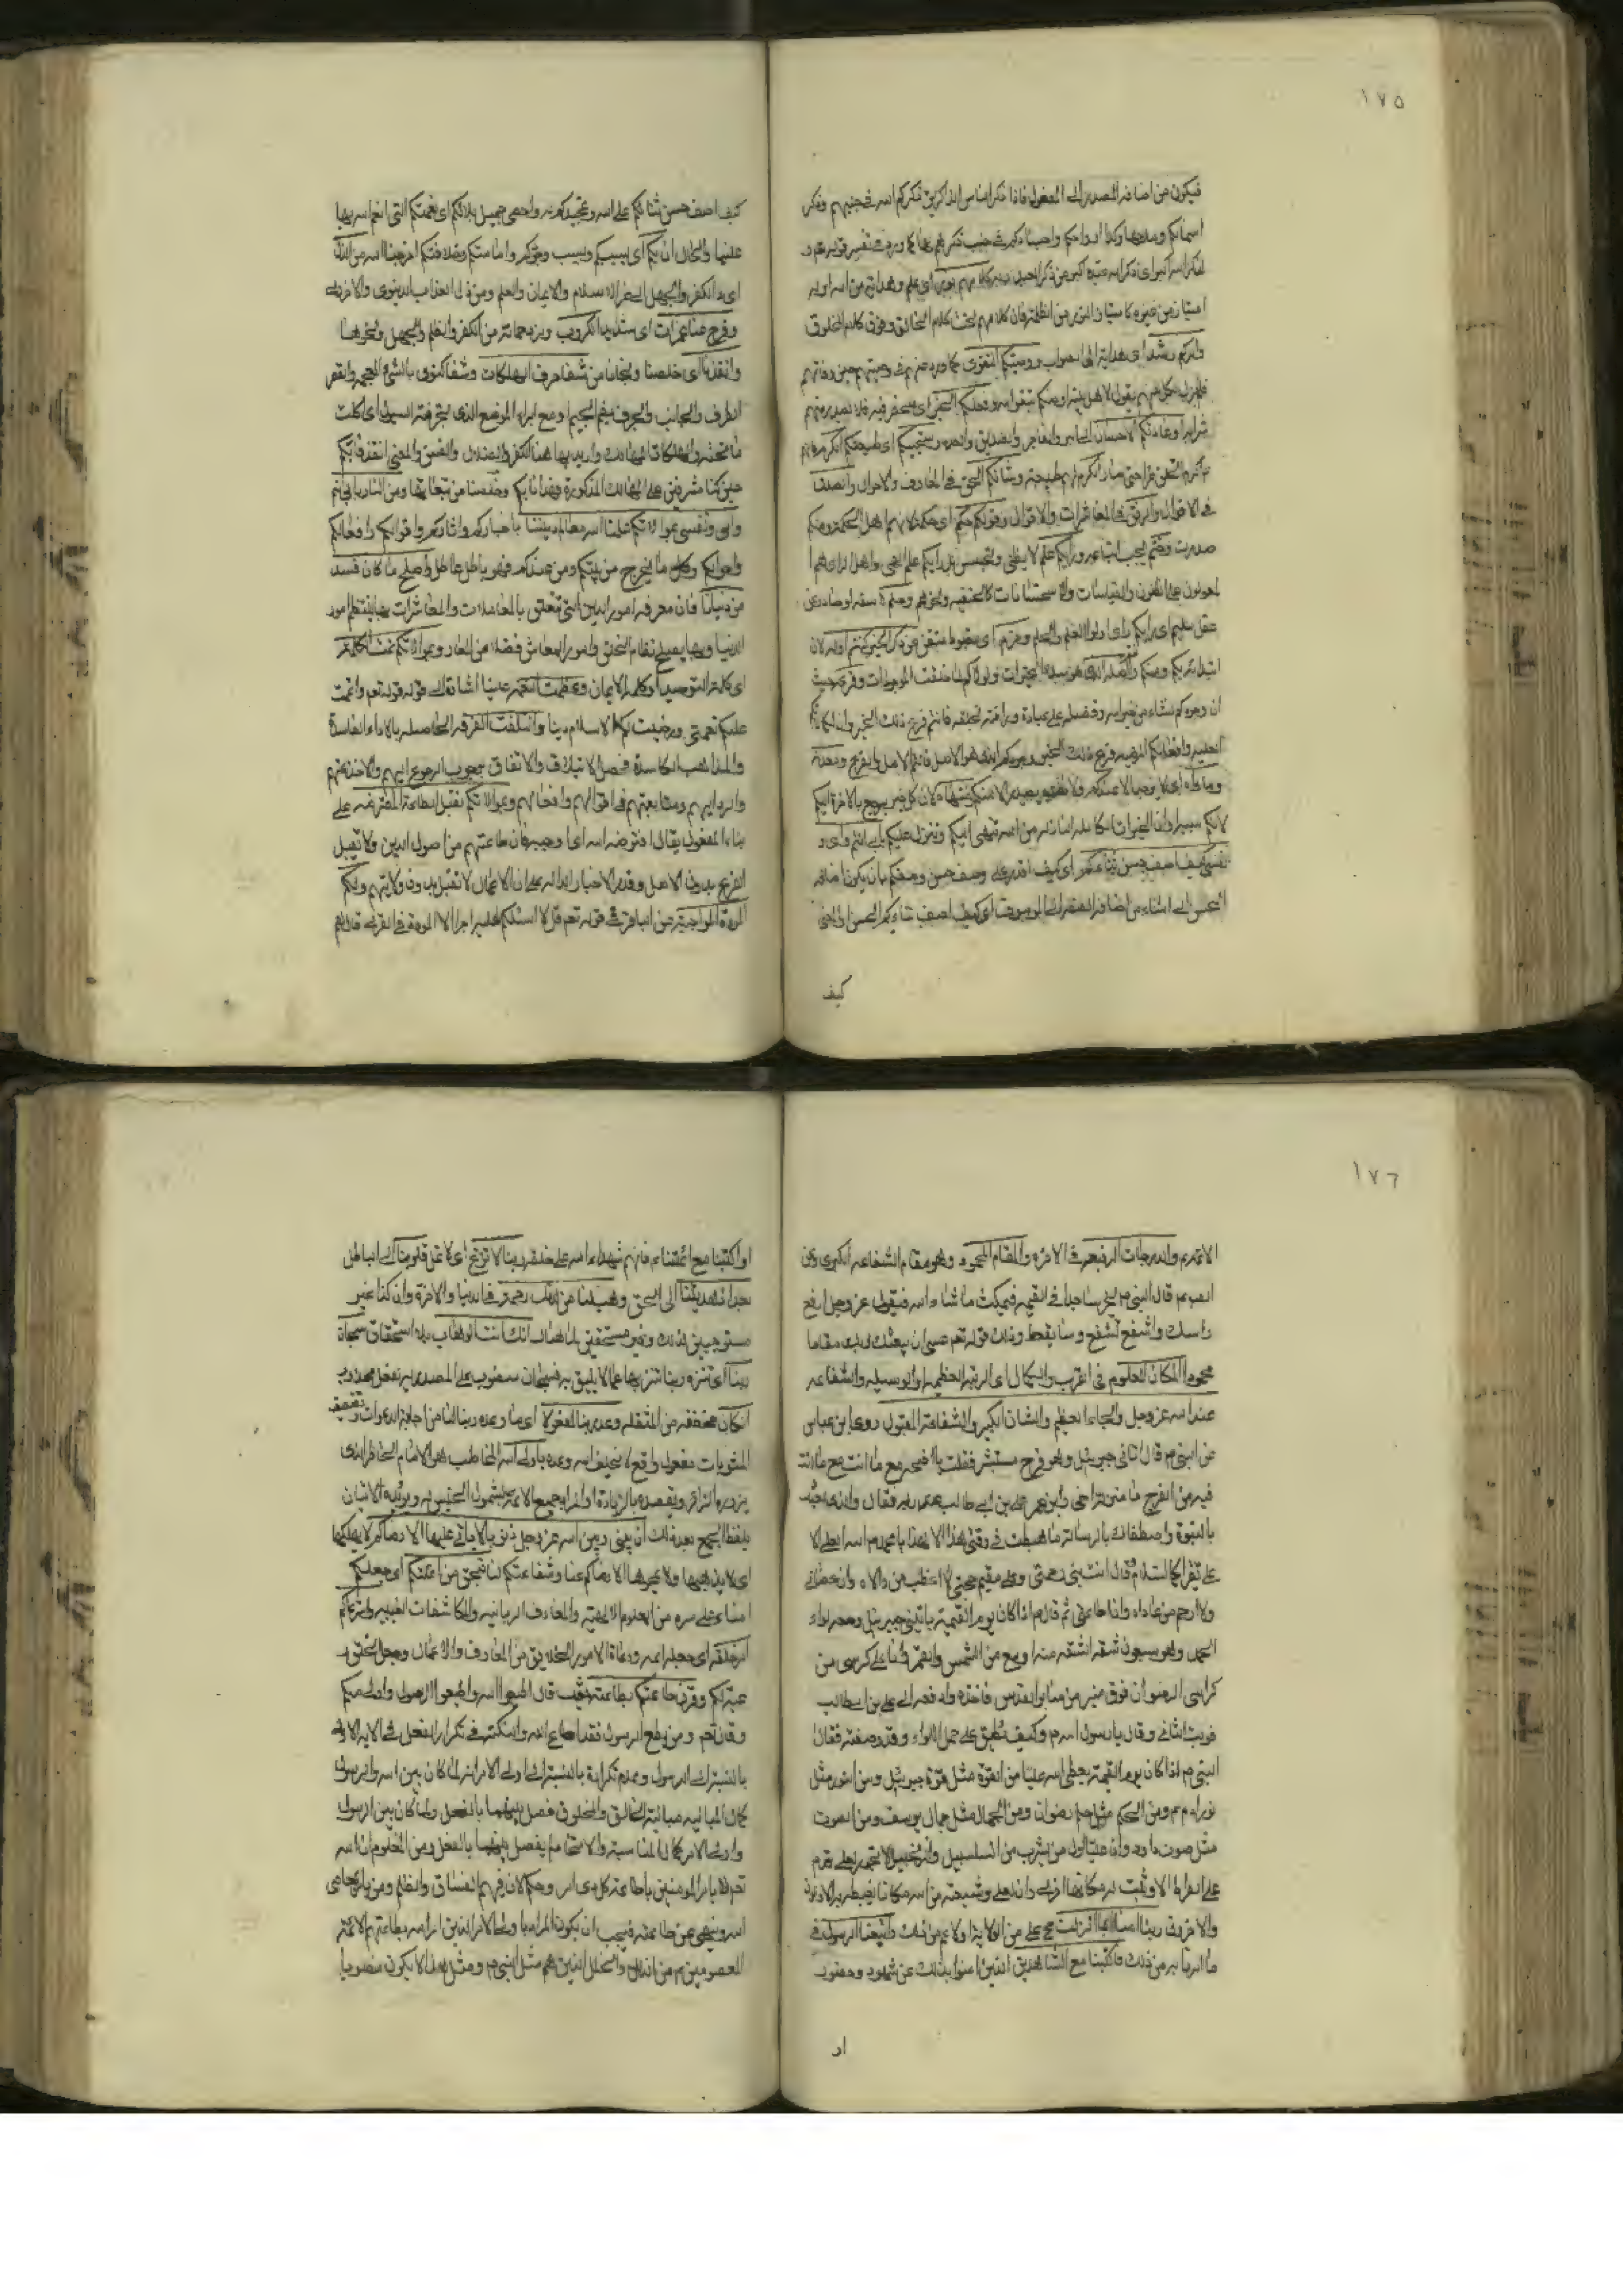 ١٧٥
فيكون من اضافة المصدر الى المفعول فاذا ذكر الناس الذاكرين ذكركم الله في جنبهم وذكر
اسمائكم
لذكر الله اكبر اى ذكر الله عبده اكبر من ذكر العبد ربه كلامهم نور اى علم وهداية من الله او له
امتياز من غيره كامتياز النور من الظلمة فان كلامهم تحت كلام الخالق وفوق كلام المخلوق
وامركم رشد اى هداية الى الصواب ووصيتكم التقوى كما ورد عنهم في وصيتهم حين وفاتهم
وفعلكم الخير اى منحصر فيه فلا يصدر منهم
شر ابدا وعادتكم الاحسان الى البر والفاجر والصديق والعدو وسجيتكم اى طبيعتكم الكرم فانهم
وشانكم الحق في المعارف والاحوال والصدق
في الاقوال والرفق في المعاشرات والاقوال وقولكم حكم اى حكمة لانهم اهل الحكمة ومنكم
صدرت وحتم يجب اتباعه ورايكم علم لا بظن وتخمين بل رايكم علم الهى واهل الراى هم
المعولون على الظنون والقياسات والاستحسانات كالحنفية ونحوهم وحلم
عقل سليم اى رايكم راى اولوا العلم والحلم وحزم اى مضبوط متقن ان ذكر الخير كنتم اوله لان
ابتدائه بكم ومنكم واصله
ان وجودكم نشاء من خير الله وفضله على عباده ورافته لخلقه فانتم فرع ذلك الخير
العلية وافعالكم المرضية فرع ذلك الخير وجودكم الذى هو الاصل فانتم الاصل والفرع ومعدنه
وماواه اى لا يوجد الا عندكم ولا يصدر الا منكم ومنتهاه لان كل خير يرجع بالاخرة اليكم
لانكم سببه او ان الخيرات الكاملة النازلة من الله تنتهى اليكم وتنزل عليكم بابى انتم وامى و
نفسى كيف اصف حسن ثنائكم اى كيف اقدر على وصف حسن وصفكم بان يكون اضافة
الحسن الى الثناء من اضافة الصفة الى الموصوف اى كيف اصف ثناءكم الحسن او المعنى
كيف
كيف اصف حسن ثنائكم على الله وتمجيدكم له واحصى جميل بلائكم اى نعمتكم التى انعم الله بها
علينا والحال ان بكم اى بسببكم وبسبب وجودكم وامامتكم وخلافتكم اخرجنا الله من الذل
اى ذل الكفر والجهل الى عز الاسلام والايمان والعلم ومن ذل العذاب الدنيوى والاخروى
وفرج عنا غمرات اى شدايد الكروب ومزدحماته من الكفر والظلم والجهل ونحوها
وانقذنا اى خلصنا ونجانا من شفا جرف الهلكات وشفا كنوى بالشين المعجمة والقصر
الطرف والجانب والجرف بضم الجيم ومع الراء الموضع الذى تجرفته السيول اى اكلت
ما تحته والهلكات المهالك واريد بها هنا الكفر والضلال والفسق والمعنى انقذنا بكم
حين كنا مشرفين على المهالك المذكورة فهدانا بكم وخلصنا من تبعاتها ومن النار بابى انتم
وامى ونفسى بموالاتكم علمنا الله معالم ديننا باخباركم واثاركم واقوالكم وافعالكم
واحوالكم وكل ما لم يخرج من بيتكم ومن عندكم فهو باطل عاطل واصلح ما كان فسد
من دنيانا فان معرفة امور الدين التى تتعلق بالمعاملات والمعاشرات بها ينتظم امور
الدنيا وبها يصلح نظام الخلق وامور المعاش فضلا عن المعاد وبموالاتكم تمت الكلمة
اى كلمة التوحيد او كلمة الايمان وعظمت النعمة علينا اشارة الى قوله تعم واتممت
عليكم نعمتى ورضيت لكم الاسلام دينا وائتلفت الفرقة الحاصلة بالاراء الفاسدة
والمذاهب الكاسدة فحصل الايتلاف والاتفاق بوجوب الرجوع اليهم والاخذ عنهم
والرد اليهم ومتابعتهم في اقوالهم وافعالهم وبموالاتكم تقبل الطاعة المفترضة على
بناء المفعول يقال افترضه الله اى اوجبه فان طاعتهم من اصول الدين ولا تقبل
الفرع بدون الاصل وقد مر الاخبار الدالة على ان الاعمال لا تقبل بدون ولايتهم ولكم
المودة الواجبة عن الباقر في قوله تعم قل لا اسئلكم عليه اجرا الا المودة في القربى قال هم
١٧٦
الائمة م والدرجات الرفيعة في الاخرة والمقام المحمود وهو مقام الشفاعة الكبرى وعن
قال النبى م اخر ساجدا في القيمة فيمكث ما شاء الله فيقول عز وجل ارفع
راسك واشفع تشفع وسل تعط وذلك قوله تعم عسى ان يبعثك ربك مقاما
محمودا المكان المعلوم في القرب والكمال اى الرتبة العظيمة او الوسيلة والشفاعة
عند الله عز وجل والجاه العظيم والشان الكبير والشفاعة المقبولة روى ابن عباس
عن النبى م قال اتانى جبرئيل وهو فرح مستبشر فقلت يا
فيه من الفرح ما منزلة اخى وابن عمى على بن ابى طالب عند ربه فقال والذى بعثك
بالنبوة واصطفاك بالرسالة ما هبطت في وقتى هذا الا لهذا يا محمد م الله الاعلى
يقرء السلام وقال انت نبى رحمتى وعلى مقيم حجتى لا اعذب من والاه وان عصانى
ولا ارحم من عاداه وان اطاعنى ثم قال م اذا كان يوم القيمة ياتينى جبرئيل ومعه لواء
الحمد وهو سبعون شقة الشقة منه اوسع من الشمس والقمر وانا على كرسى من
كراسى الرضوان فوق منبر من منابر القدس فاخذه وادفعه الى على بن ابيطالب
فوثب الثانى وقال يا رسول الله م وكيف يطيق على حمل اللواء وقد وصفته فقال
النبى م اذا كان يوم القيمة يعطى الله عليا من القوة مثل قوة جبرئيل ومن النور مثل
نور ادم عم ومن الحلم مثل حلم رضوان ومن الجمال مثل جمال يوسف ومن الصوت
مثل صوت داود وان عليا اول من يشرب من السلسبيل والزنجبيل لا يجوز لعلى قدم
على الصراط الا وثبت له مكانها اخرى وان لعلى وشيعته من الله مكانا يغبطه به الاولون
والاخرون ربنا امنا بما انزلت على من الولاية واتبعنا الرسول في
ما امرنا به من ذلك فاكتبنا مع الشاهدين الذين امنوا بذلك عن شهود وحضور
او
او اكتبنا مع ائمتنا فانهم شهداء الله على خلقه ربنا لا تزغ اى لا تمل قلوبنا الى الباطل
بعد اذ هديتنا الى الحق وهب لنا من لدنك رحمة في الدنيا والاخرة وان كنا غير
مستوجبين لذلك وغير مستحقين انك انت الوهاب بلا استحقاق سبحان
ربنا اى تنزه ربنا تنزيها عما لا يليق به فسبحان منصوب على المصدرية بفعل محذوف
ان كان مخففة من المثقلة وعد ربنا لمفعولا اى ما وعده ربنا لنا من اجابة الدعوات وتضعيف
المثوبات مفعول واقع لا يخلف الله وعده يا ولى الله المخاطب هو الامام الحاضر الذى
يزوره الزائر ويقصده بالزيادة او المراد جميع الائمة بشمول الجنس له ويؤيده الاتيان
بلفظ الجمع بعد ذلك ان بينى وبين الله عز وجل ذنوبا لا ياتى عليها الا رضاكم لا يهلكها
اى لا يذهبها ولا يمحوها الا رضاكم عنا وشفاعتكم لنا فبحق من ائتمنكم اى جعلكم
امناء على سره من العلوم الالهية والمعارف الربانية والمكاشفات الغيبية واسترعاكم
امر خلقه اى جعله ائمة ورعاة الامور الخلايق من المعارف والاعمال وجعل الخلق
وقرن طاعتكم بطاعته حيث قال اطيعوا الله واطيعوا الرسول واولى الامر منكم
وقال تعم ومن يطع الرسول فقد اطاع الله والنكتة في تكرار الفعل في الاية الاولى
بالنسبة الى الرسول وعدم تكراره بالنسبة الى اولى الامر انه لما كان بين الله والرسول
كمال المباينة مباينة الخالق والمخلوق فصل بينهما بالفعل ولما كان بين الرسول
واولى الامر كمال المناسبة والاتحاد لم يفصل بينهما بالفعل ومن المعلوم ان الله
تعم لا يامر المومنين باطاعة كل ذى امر وحكم لان فيهم الفساق والظلم ومن يامر بمعاصى
الله وينهى عن طاعته فيجب ان يكون المراد باولى الامر الذين امر الله بطاعتهم الائمة
المعصومين م من الزلل والخلل الذين هم مثل النبى م ومثل هذا لا يكون منصوبا